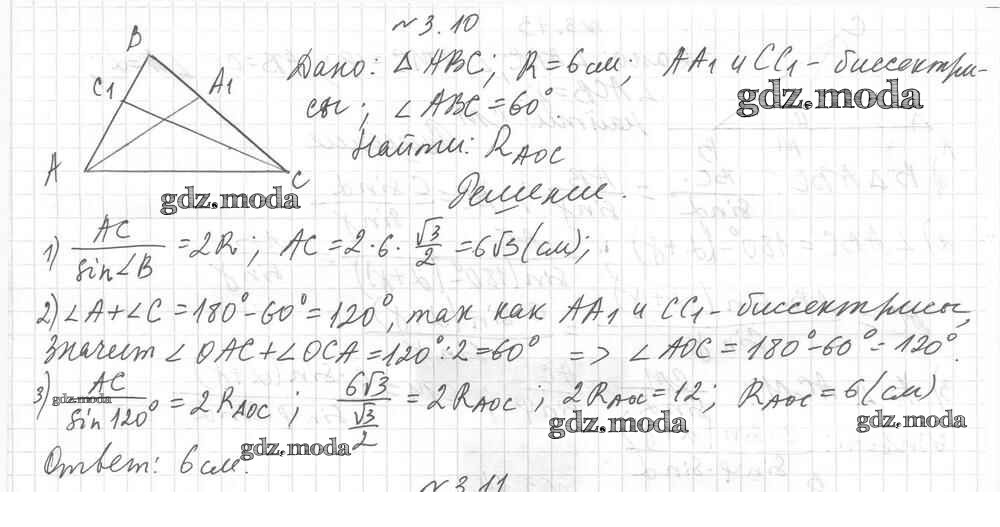 №3.10
B
C1
A1
A
C
Дано: △ABC; R=6см; AA1 и CC1 - биссектри-
сы; ∠ABC=60°
gdz.moda
Найти: R_AOC
gdz.moda
Решение.
1) AC/sin∠B = 2R; AC = 2·6·√3/2 = 6√3 (см);
2) ∠A+∠C=180°-60°=120°, так как AA1 и CC1 - биссектрисы,
значит ∠OAC+∠OCA=120°:2=60° => ∠AOC=180°-60°=120°.
3) AC/sin120° = 2R_AOC; 6√3/(√3/2) = 2R_AOC; 2R_AOC=12; R_AOC=6(см)
gdz.moda
gdz.moda
gdz.moda
gdz.moda
Ответ: 6 см.
№3.11